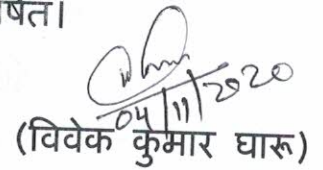 षत।
04/11/2020
(विवेक कुमार घारू)